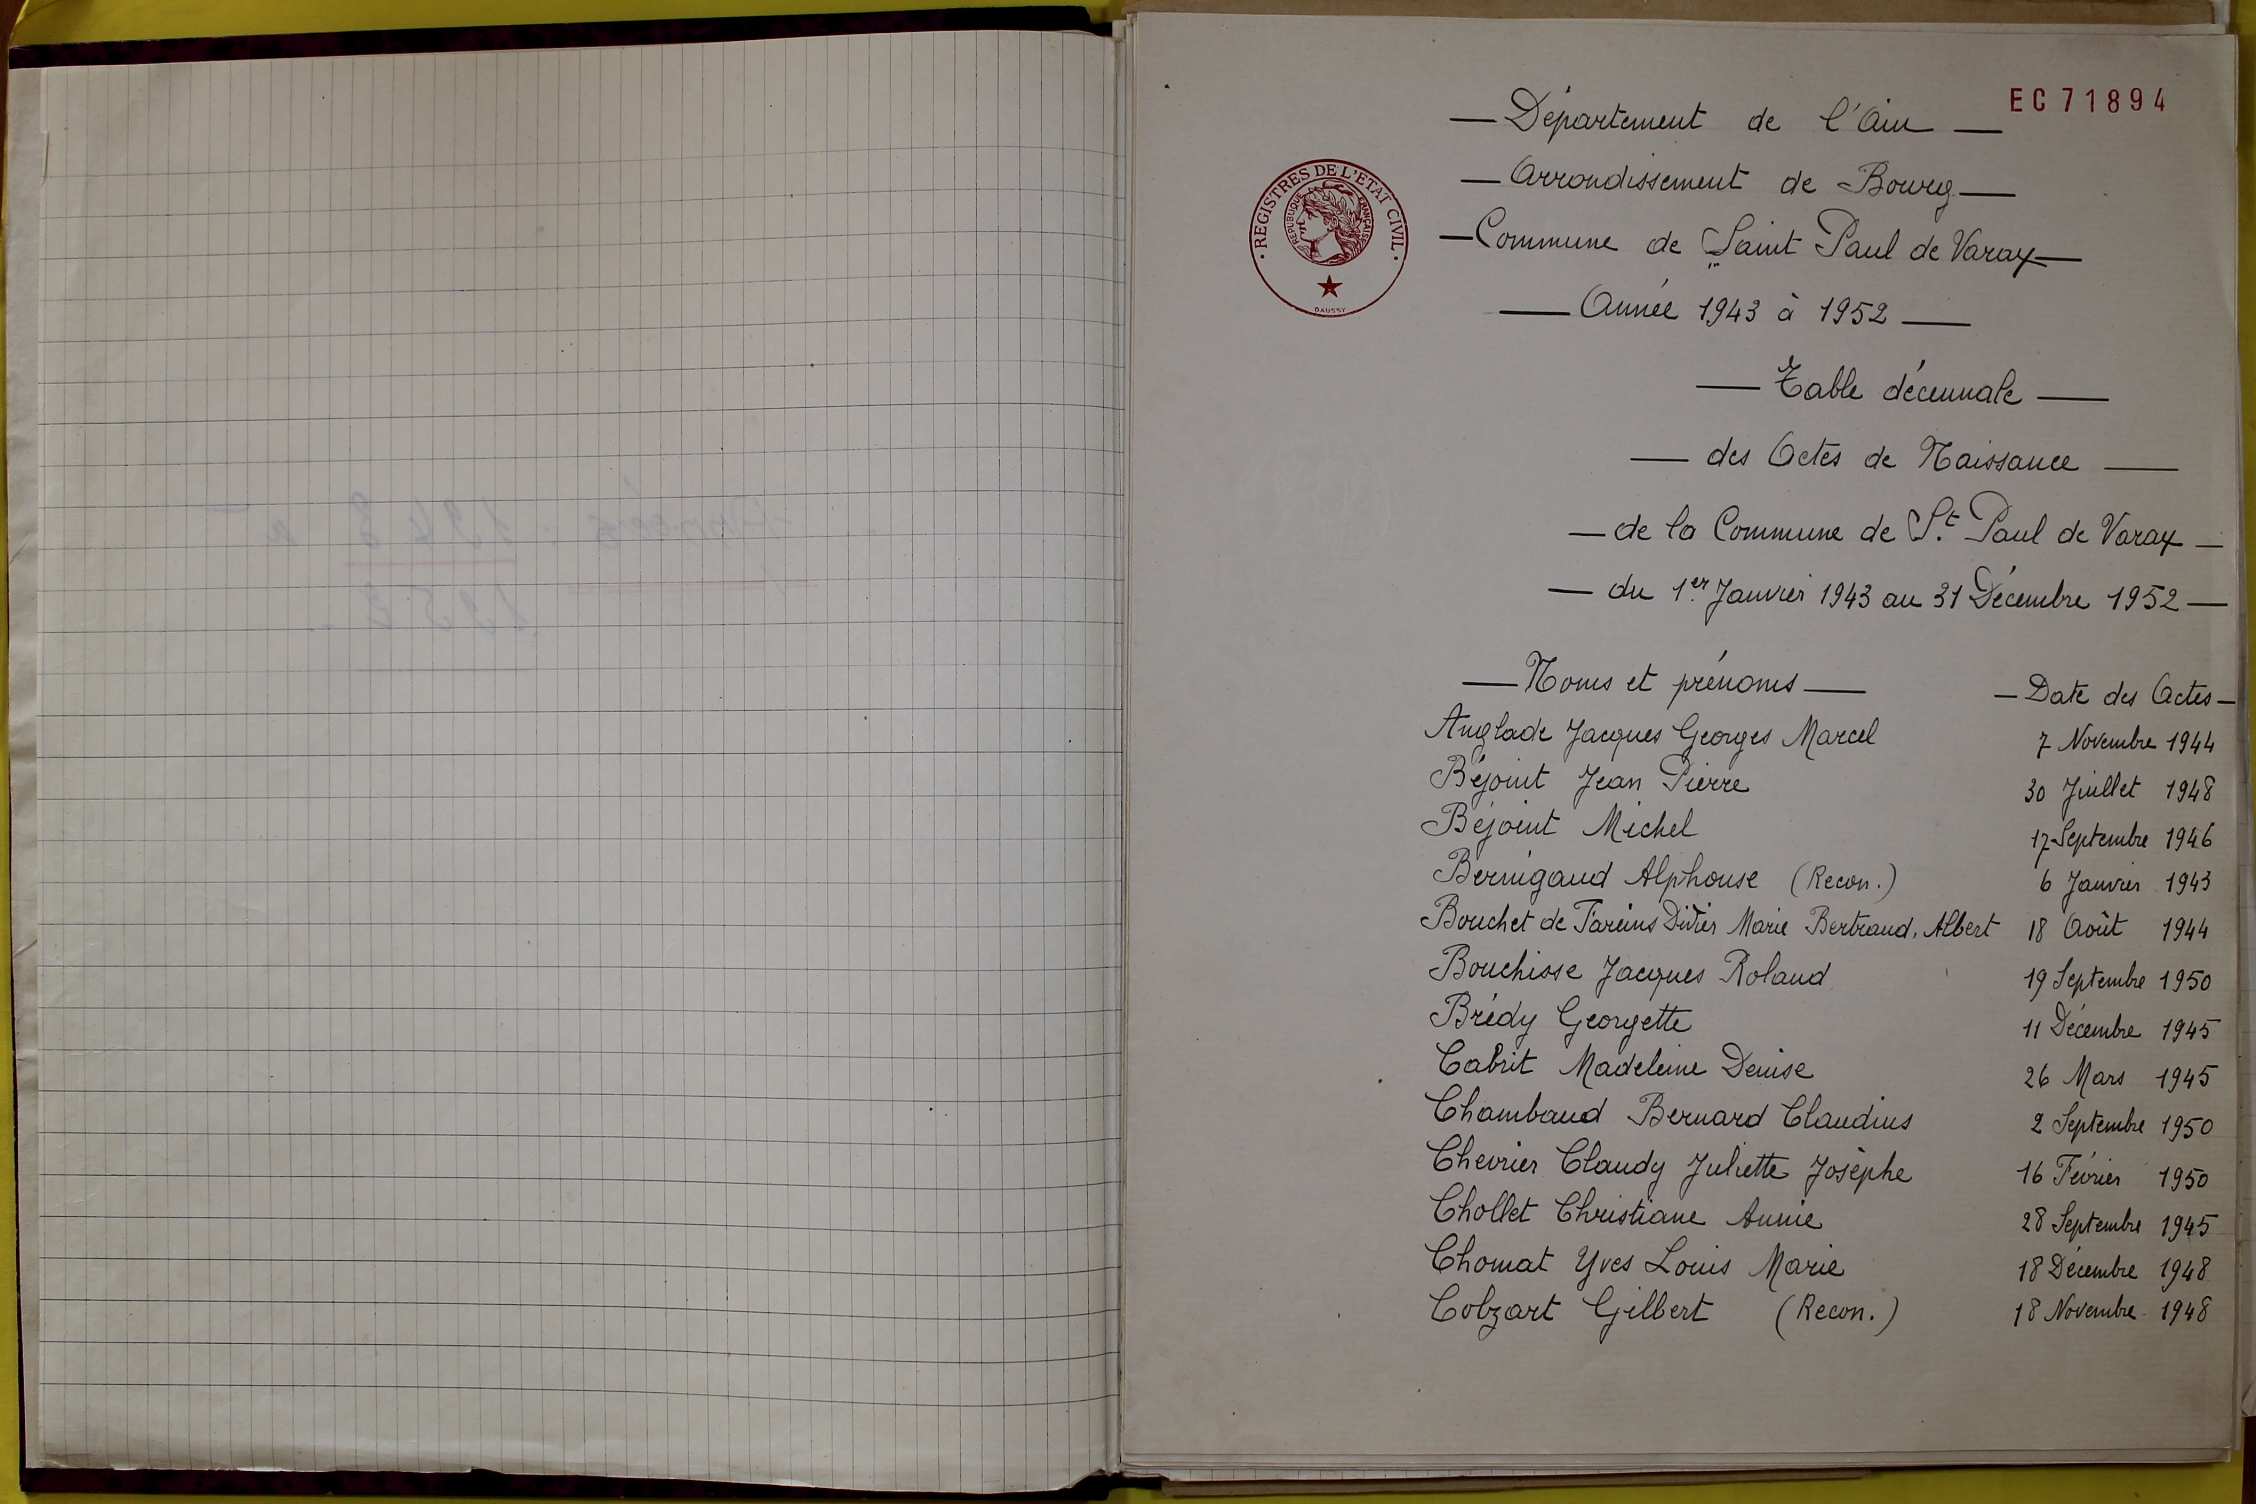 EC 71894
— Département de l'Ain —
— Arrondissement de Bourg —
— Commune de Saint Paul de Varax —
— Année 1943 à 1952 —
· REGISTRES DE L'ETAT CIVIL ·
REPUBLIQUE FRANÇAISE
DAUSSY
— Table décennale —
— des Actes de Naissance —
— de la Commune de St. Paul de Varax —
— du 1er Janvier 1943 au 31 Décembre 1952 —
— Noms et prénoms — — Date des Actes —
Anglade Jacques Georges Marcel 7 Novembre 1944
Béjoint Jean Pierre 30 Juillet 1948
Béjoint Michel 17 Septembre 1946
Bernigaud Alphonse (Recon.) 6 Janvier 1943
Bouchet de Fareins Didier Marie Bertrand, Albert 18 Août 1944
Bouchisse Jacques Roland 19 Septembre 1950
Brédy Georgette 11 Décembre 1945
Cabrit Madeleine Denise 26 Mars 1945
Chambaud Bernard Claudius 2 Septembre 1950
Chevrier Claudy Juliette Josèphe 16 Février 1950
Chollet Christiane Annie 28 Septembre 1945
Chomat Yves Louis Marie 18 Décembre 1948
Cobzart Gilbert (Recon.) 18 Novembre 1948